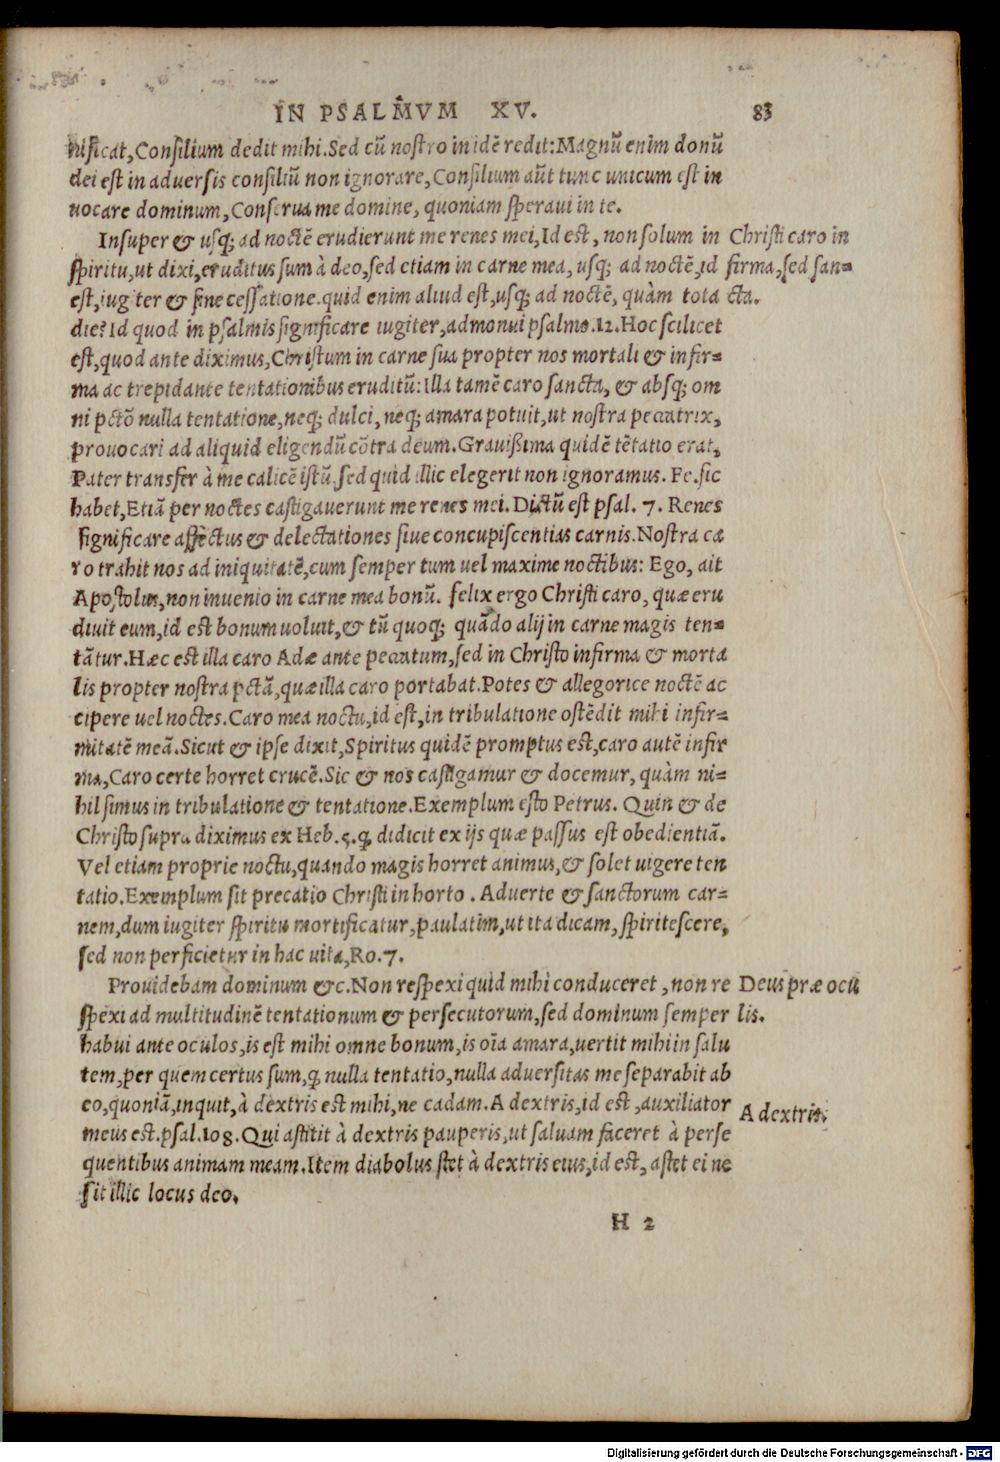 IN PSALMVM XV. 83
nificat, Consilium dedit mihi. Sed cū nostro in idē redit: Magnū enim donū
dei est in aduersis consiliū non ignorare, Consilium aūt tunc unicum est in
uocare dominum, Conserua me domine, quoniam speraui in te.
Insuper & usq; ad noctē erudierunt me renes mei, Id est, non solum in
Christi caro in
spiritu, ut dixi, eruditus sum à deo, sed etiam in carne mea, usq; ad noctē, id
firma, sed san=
est, iugiter & sine cessatione. quid enim aliud est, usq; ad noctē, quàm tota
cta.
die? Id quod in psalmis significare iugiter, admonui psalmo. 12. Hoc scilicet
est, quod ante diximus, Christum in carne sua propter nos mortali & infir=
ma ac trepidante tentationibus eruditū: Illa tamē caro sancta, & absq; om
ni pctō nulla tentatione, neq; dulci, neq; amara potuit, ut nostra peccatrix,
prouocari ad aliquid eligendū cōtra deum. Grauißima quidē tētatio erat,
Pater transfer à me calicē istū, sed quid illic elegerit non ignoramus. Fe. sic
habet, Etiā per noctes castigauerunt me renes mei. Dictū est psal. 7. Renes
significare affectus & delectationes siue concupiscentias carnis. Nostra ca
ro trahit nos ad iniquitatē, cum semper tum uel maxime noctibus: Ego, ait
Apostolus, non inuenio in carne mea bonū. felix ergo Christi caro, quæ eru
diuit eum, id est bonum uoluit, & tū quoq; quādo alij in carne magis ten=
tātur. Hæc est illa caro Adæ ante peccatum, sed in Christo infirma & morta
lis propter nostra pctā, quæ illa caro portabat. Potes & allegorice noctē ac
cipere uel noctes. Caro mea noctu, id est, in tribulatione ostēdit mihi infir=
mitatē meā. Sicut & ipse dixit, Spiritus quidē promptus est, caro autē infir
ma, Caro certe horret crucē. Sic & nos castigamur & docemur, quàm ni=
hil simus in tribulatione & tentatione. Exemplum esto Petrus. Quin & de
Christo supra diximus ex Heb. 5. q̨ didicit ex ijs quæ passus est obedientiā.
Vel etiam proprie noctu, quando magis horret animus, & solet uigere ten
tatio. Exemplum sit precatio Christi in horto. Aduerte & sanctorum car=
nem, dum iugiter spiritu mortificatur, paulatim, ut ita dicam, spiritescere,
sed non perficietur in hac uita, Ro. 7.
Prouidebam dominum &c. Non respexi quid mihi conduceret, non re
Deus præ ocu
spexi ad multitudinē tentationum & persecutorum, sed dominum semper
lis.
habui ante oculos, is est mihi omne bonum, is oīa amara, uertit mihi in salu
tem, per quem certus sum, q̨ nulla tentatio, nulla aduersitas me separabit ab
eo, quoniā, inquit, à dextris est mihi, ne cadam. A dextris, id est, auxiliator
A dextris.
meus est. psal. 108. Qui astitit à dextris pauperis, ut saluam faceret à perse
quentibus animam meam. Item diabolus stet à dextris eius, id est, astet ei ne
sit illic locus deo.
H 2
Digitalisierung gefördert durch die Deutsche Forschungsgemeinschaft - DFG